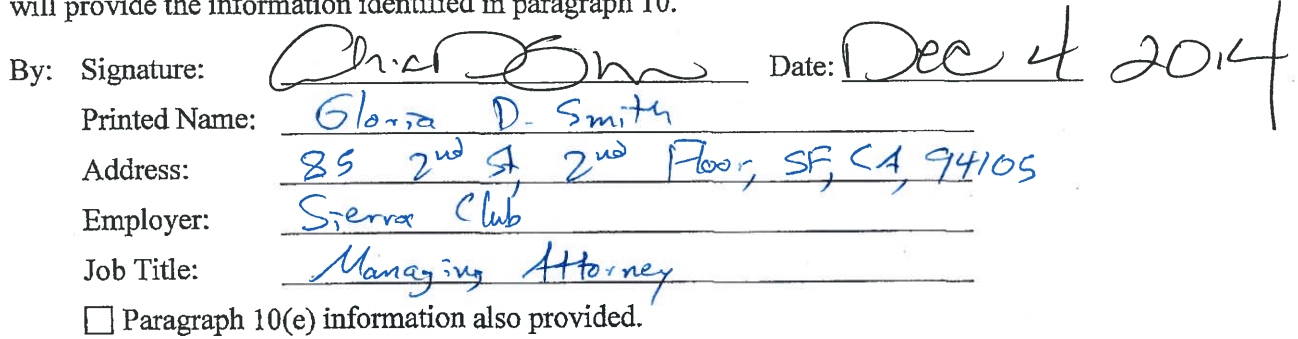 will provide the information identified in paragraph 10.
By: Signature: Date: Dec 4 2014
Printed Name: Gloria D. Smith
Address: 85 2nd St, 2nd Floor, SF, CA, 94105
Employer: Sierra Club
Job Title: Managing Attorney
☐ Paragraph 10(e) information also provided.